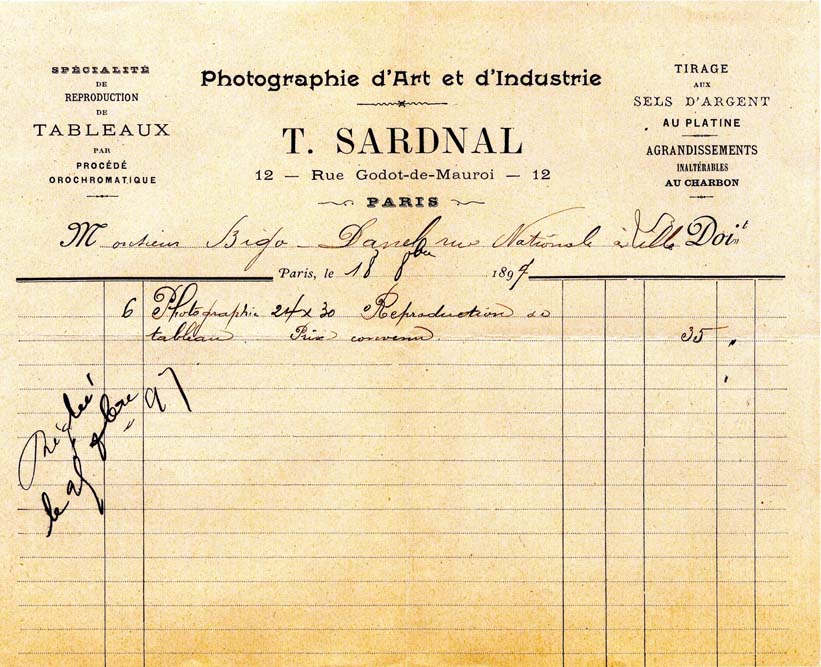 SPÉCIALITÉ
DE
REPRODUCTION
DE
TABLEAUX
PAR
PROCÉDÉ
OROCHROMATIQUE
Photographie d'Art et d'Industrie
T. SARDNAL
12 — Rue Godot-de-Mauroi — 12
PARIS
TIRAGE
AUX
SELS D'ARGENT
AU PLATINE
AGRANDISSEMENTS
INALTÉRABLES
AU CHARBON
Monsieur Bigo - Danel rue Nationale à Lille Doit
Paris, le 18 8bre 1897
6 Photographie 24 x 30 Reproduction de
tableau. Prix convenu. 35 "
Réglé
le 8bre 97